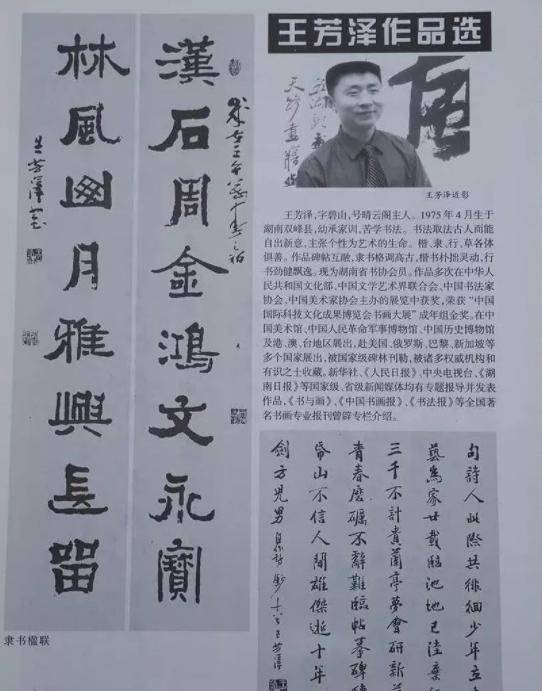 王芳泽作品选
王芳泽近影
王芳泽,字碧山,号晴云阁主人。1975年4月生于
湖南双峰县,幼承家训,苦学书法。书法取法古人而能
自出新意,主张个性为艺术的生命。楷、隶、行、草各体
俱善。作品碑帖互融,隶书格调高古,楷书朴拙灵动,行
书劲健飘逸。现为湖南省书协会员。作品多次在中华人
民共和国文化部、中国文学艺术界联合会、中国书法家
协会、中国美术家协会主办的展览中获奖,荣获“中国
国际科技文化成果博览会书画大展”成年组金奖。在中
国美术馆、中国人民革命军事博物馆、中国历史博物馆
及港、澳、台地区展出,赴美国、俄罗斯、巴黎、新加坡等
多个国家展出,被国家级碑林刊勒,被诸多权威机构和
有识之士收藏。新华社、《人民日报》、中央电视台、《湖
南日报》等国家级、省级新闻媒体均有专题报导并发表
作品,《书与画》、《中国书画报》、《书法报》等全国著
名书画专业报刊曾辟专栏介绍。
漢石周金鴻文永寶
林風幽月雅興長留
隶书楹联
句詩人此際共徘徊少年立
藝為家廿載臨池池已
三千不計貴蘭亭夢會研新
青春磨礪不辭難臨帖摹碑
山不信人間雄傑逝十年
劍方見男